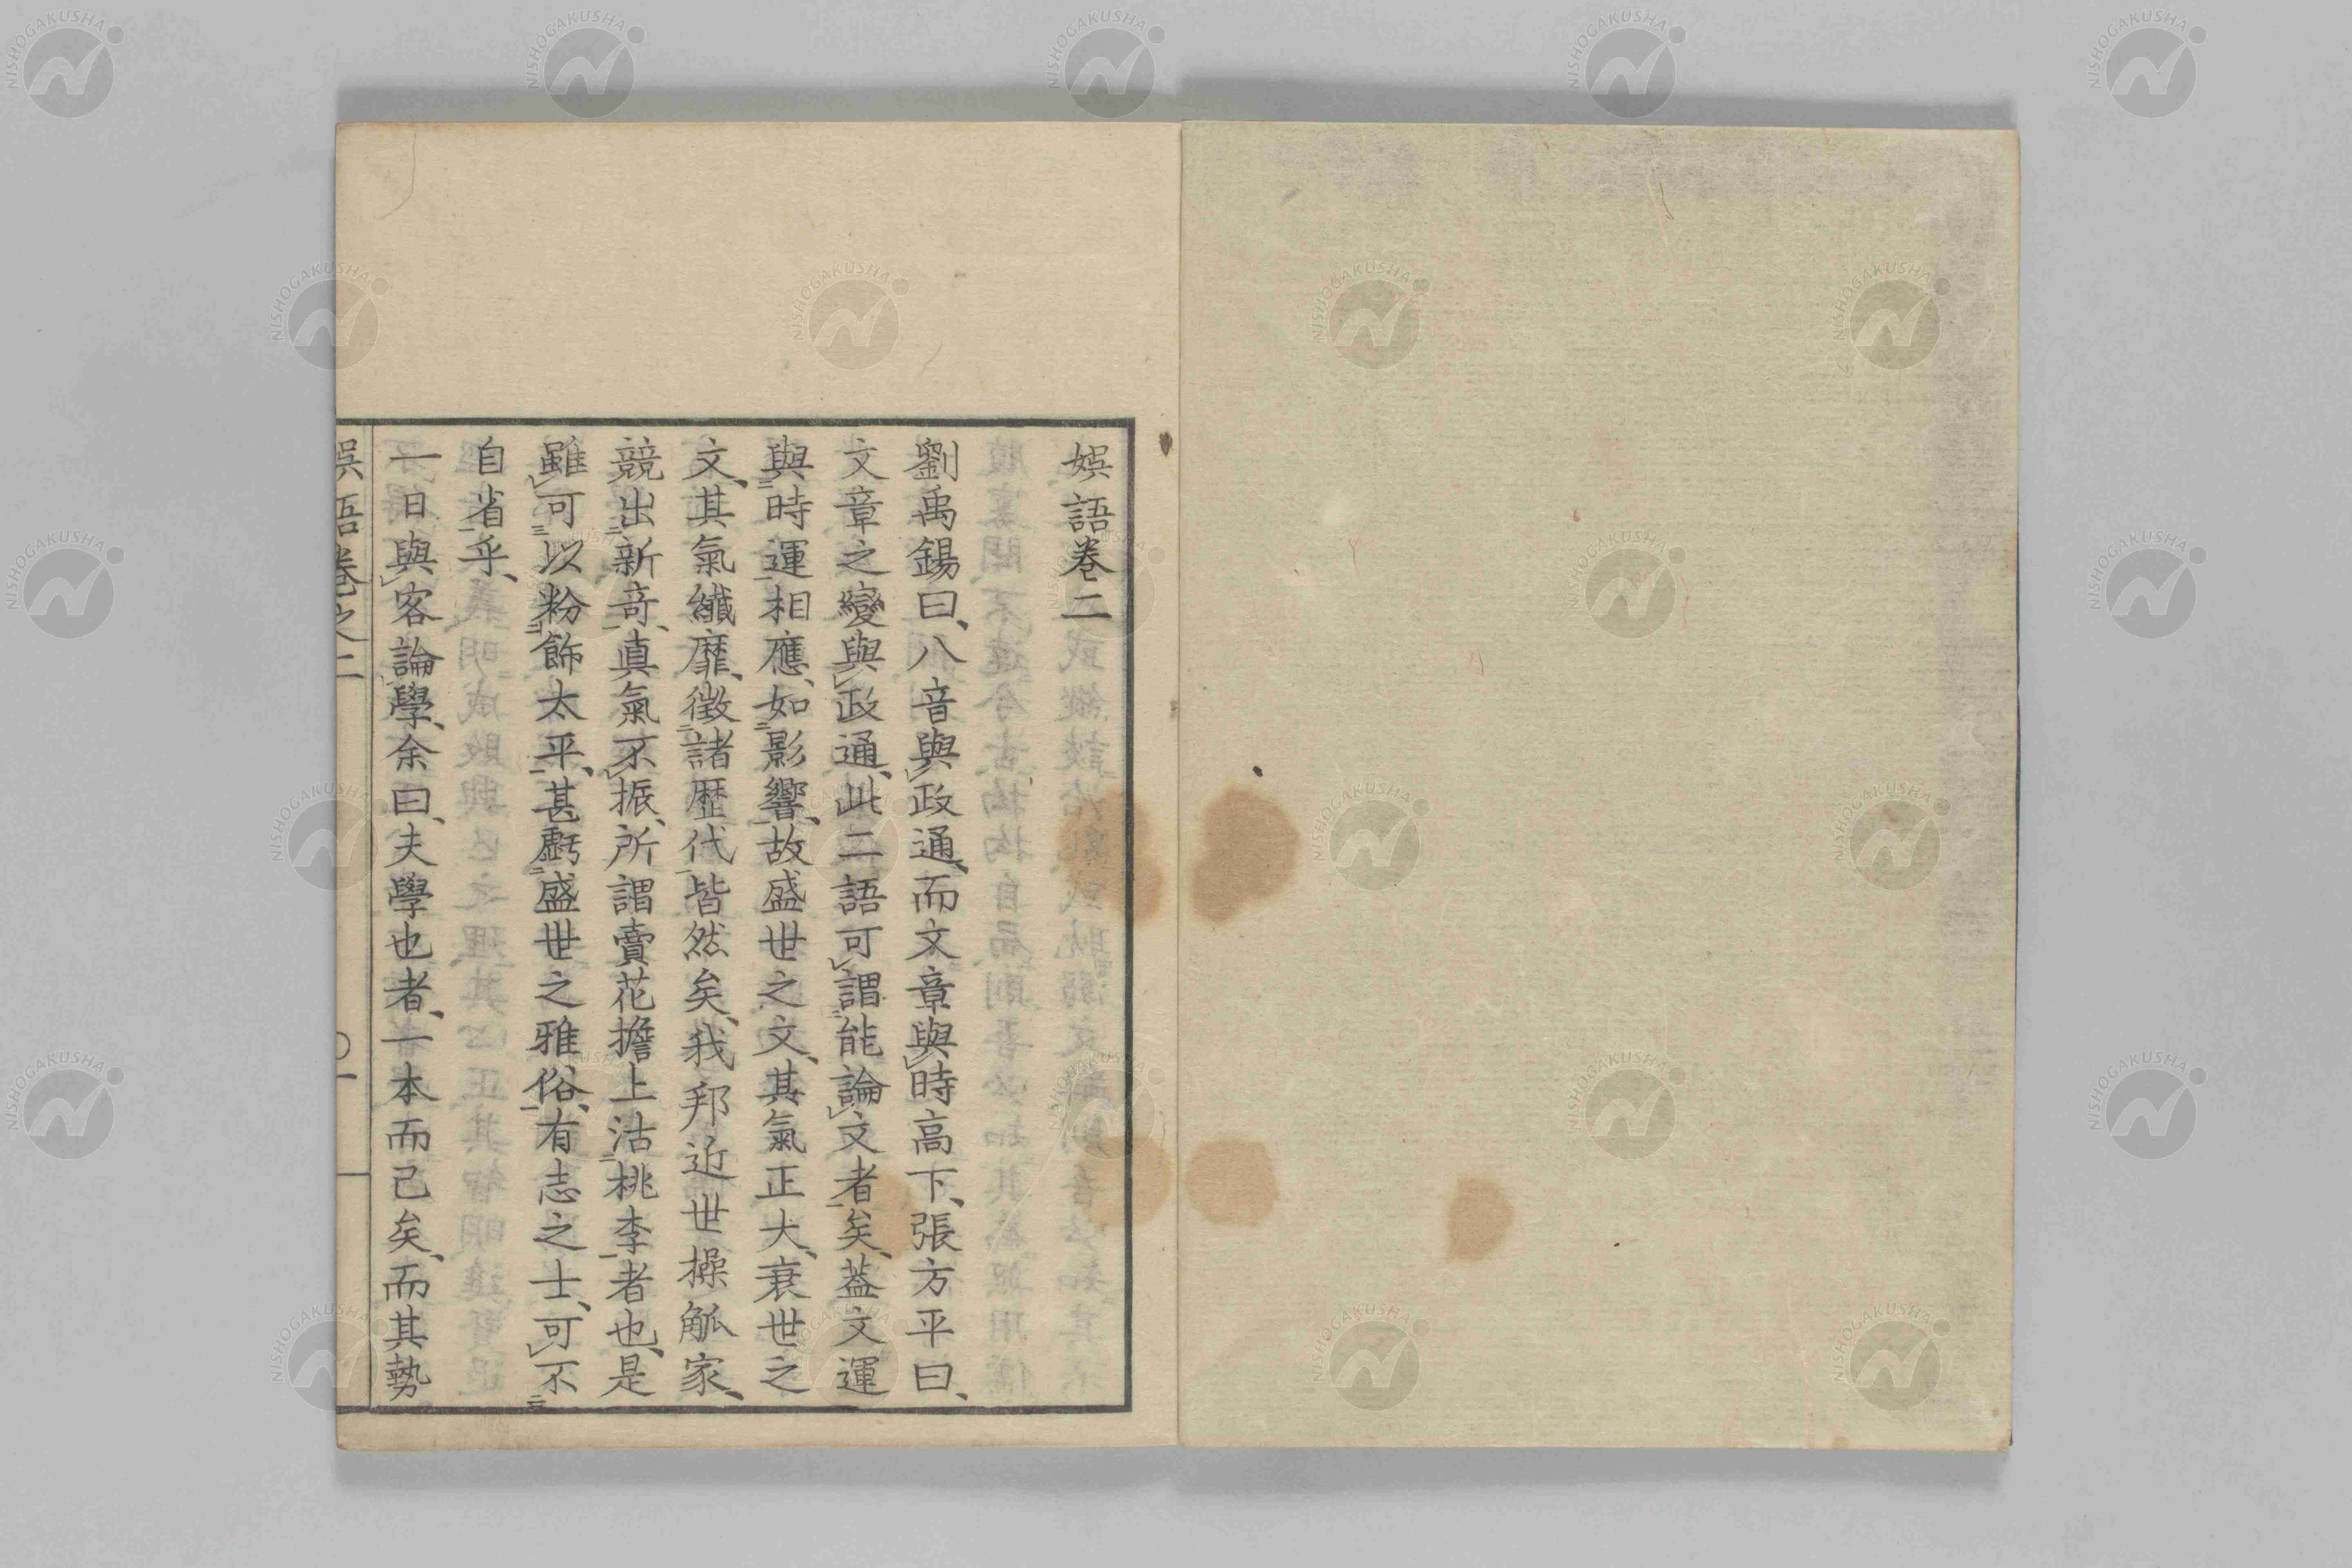 娯語巻二
劉禹錫曰、八音與政通、而文章與時高下、張方平曰、
文章之變與政通、此二語可謂能論文者矣、葢文運
與時運相應、如影響、故盛世之文、其氣正大、衰世之
文、其氣纖靡、徴諸歴代皆然矣、我邦近世操觚家、
競出新竒、真氣不振、所謂賣花擔上沽桃李者也、是
雖可以粉飾太平、甚虧盛世之雅俗、有志之士、可不
自省乎、
一日與客論學、余曰、夫學也者、一本而己矣、而其勢
娯語巻之二
〇一
NISHOGAKUSHA